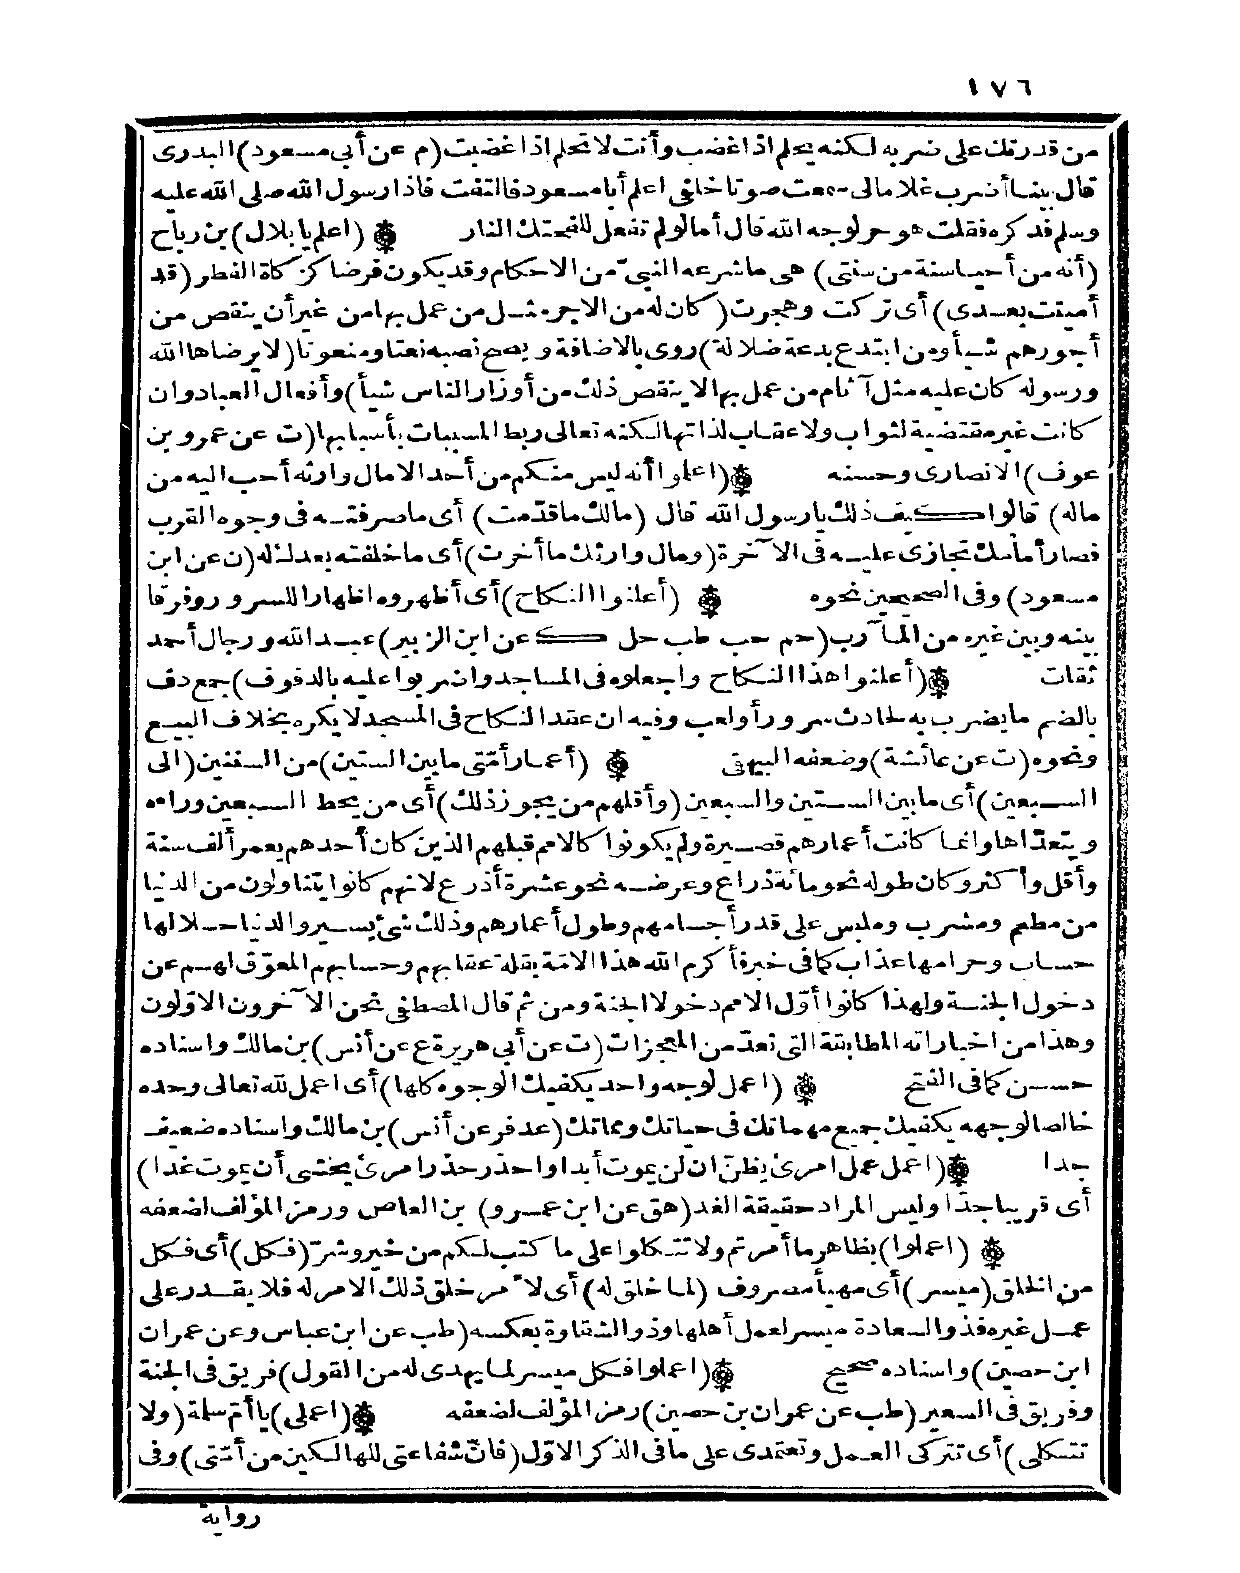 ١٧٦
من قدرتك على ضربه لكنه يحلم اذا غضب وأنت لا تحلم اذا غضبت (م عن أبي مسعود) البدرى
قال بينا أضرب غلاما لى سمعت صوتا خلفى اعلم أبا مسعود فالتفت فاذا رسول الله صلى الله عليه
وسلم قد كره فقلت هو حر لوجه الله قال أما لو لم تفعل للفحتك النار ۞ (اعلم يا بلال) بن رباح
(أنه من أحيا سنة من سنتى) هى ما شرعه النبىّ من الاحكام وقد يكون فرضا كزكاة الفطر (قد
أميتت بعدى) أى تركت وهجرت (كان له من الاجر مثل من عمل بها من غير أن ينقص من
أجورهم شيأ ومن ابتدع بدعة ضلالة) روى بالاضافة ويصح نصبه نعتا ومنعوتا (لا يرضاها الله
ورسوله كان عليه مثل آثام من عمل بها لا ينقص ذلك من أوزار الناس شيأ) وأفعال العباد وان
كانت غير مقتضية لثواب ولا عقاب لذاتها لكنه تعالى ربط المسببات بأسبابها (ت عن عمرو بن
عوف) الانصارى وحسنه ۞ (اعلموا أنه ليس منكم من أحد الا مال وارثه أحب اليه من
ماله) قالوا كيف ذلك يا رسول الله قال (مالك ما قدّمت) أى ما صرفته فى وجوه القرب
فصار أمامك تجازى عليه فى الآخرة (ومال وارثك ما أخرت) أى ما خلفته بعدك له (ن عن ابن
مسعود) وفى الصحيحين نحوه ۞ (أعلنوا النكاح) أى أظهروه اظهارا للسرور وفرقا
بينه وبين غيره من المآرب (حم حب طب حل ك عن ابن الزبير) عبد الله ورجال أحمد
ثقات ۞ (أعلنوا هذا النكاح واجعلوه فى المساجد واضربوا عليه بالدفوف) جمع دف
بالضم ما يضرب به لحادث سرور أو لعب وفيه ان عقد النكاح فى المسجد لا يكره بخلاف البيع
ونحوه (ت عن عائشة) وضعفه البيهقى ۞ (أعمار أمّتى ما بين الستين) من السنين (الى
السبعين) أى ما بين الستين والسبعين (وأقلهم من يجوز ذلك) أى من يحط السبعين وراءه
ويتعدّاها وانما كانت أعمارهم قصيرة ولم يكونوا كالامم قبلهم الذين كان أحدهم يعمر ألف سنة
وأقل وأكثر وكان طوله نحو مائة ذراع وعرضه نحو عشرة أذرع لانهم كانوا يتناولون من الدنيا
من مطعم ومشرب وملبس على قدر أجسامهم وطول أعمارهم وذلك شئ يسير والدنيا حلالها
حساب وحرامها عذاب كما فى خبر فأكرم الله هذا الامة بقلة عقابهم وحسابهم المعوّق لهم عن
دخول الجنة ولهذا كانوا أوّل الامم دخولا الجنة ومن ثم قال المصطفى نحن الآخرون الاوّلون
وهذا من اخباراته المطابقة التى تعدّ من المعجزات (ت عن أبى هريرة ع عن أنس) بن مالك واسناده
حسن كما فى الفتح ۞ (اعمل لوجه واحد يكفيك الوجوه كلها) أى اعمل لله تعالى وحده
خالصا لوجهه يكفيك جميع مهماتك فى حياتك ومماتك (عد فر عن أنس) بن مالك واسناده ضعيف
جدا ۞ (اعمل عمل امرئ يظنّ ان لن يموت أبدا واحذر حذر امرئ يخشى أن يموت غدا)
أى قريبا جدّا وليس المراد حقيقة الغد (هق عن ابن عمرو) بن العاص ورمز المؤلف لضعفه
۞ (اعملوا) بظاهر ما أمرتم ولا تتكلوا على ما كتب لكم من خير وشرّ (فكل) أى فكل
من الخلق (ميسر) أى مهيأ مصروف (لما خلق له) أى لأمر خلق ذلك الامر له فلا يقدر على
عمل غيره فذو السعادة ميسر لعمل أهلها وذو الشقاوة بعكسه (طب عن ابن عباس وعن عمران
ابن حصين) واسناده صحيح ۞ (اعملوا فكل ميسر لما يهدى له من القول) فريق فى الجنة
وفريق فى السعير (طب عن عمران بن حصين) رمز المؤلف لضعفه ۞ (اعملى) يا أمّ سلمة (ولا
تتكلى) أى تتركى العمل وتعتمدى على ما فى الذكر الاوّل (فانّ شفاعتى للهالكين من أمّتى) وفى
رواية